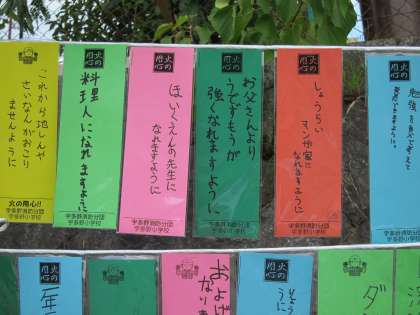 これから地しんや
さいなんがおこり
ませんように
火の用心!!
宇多野消防分団
宇多野小学校
火の
用心
料理人になれますように
宇多野消防分団
宇多野小学校
火の
用心
ほいくえんの先生に
なれますように
宇多野消防分団
宇多野小学校
火の
用心
お父さんより
うでずもうが
強くなれますように
宇多野消防分団
宇多野小学校
火の
用心
しょうらい
マンガ家に
なれますように
宇多野消防分団
宇多野小学校
火の
用心
勉強を自分で考えて
宇多野消防分団
宇多野小学校
火の
用心
年
宇多野消防分団
宇多野小学校
およげ
なりま
火の
用心
ように
ダ